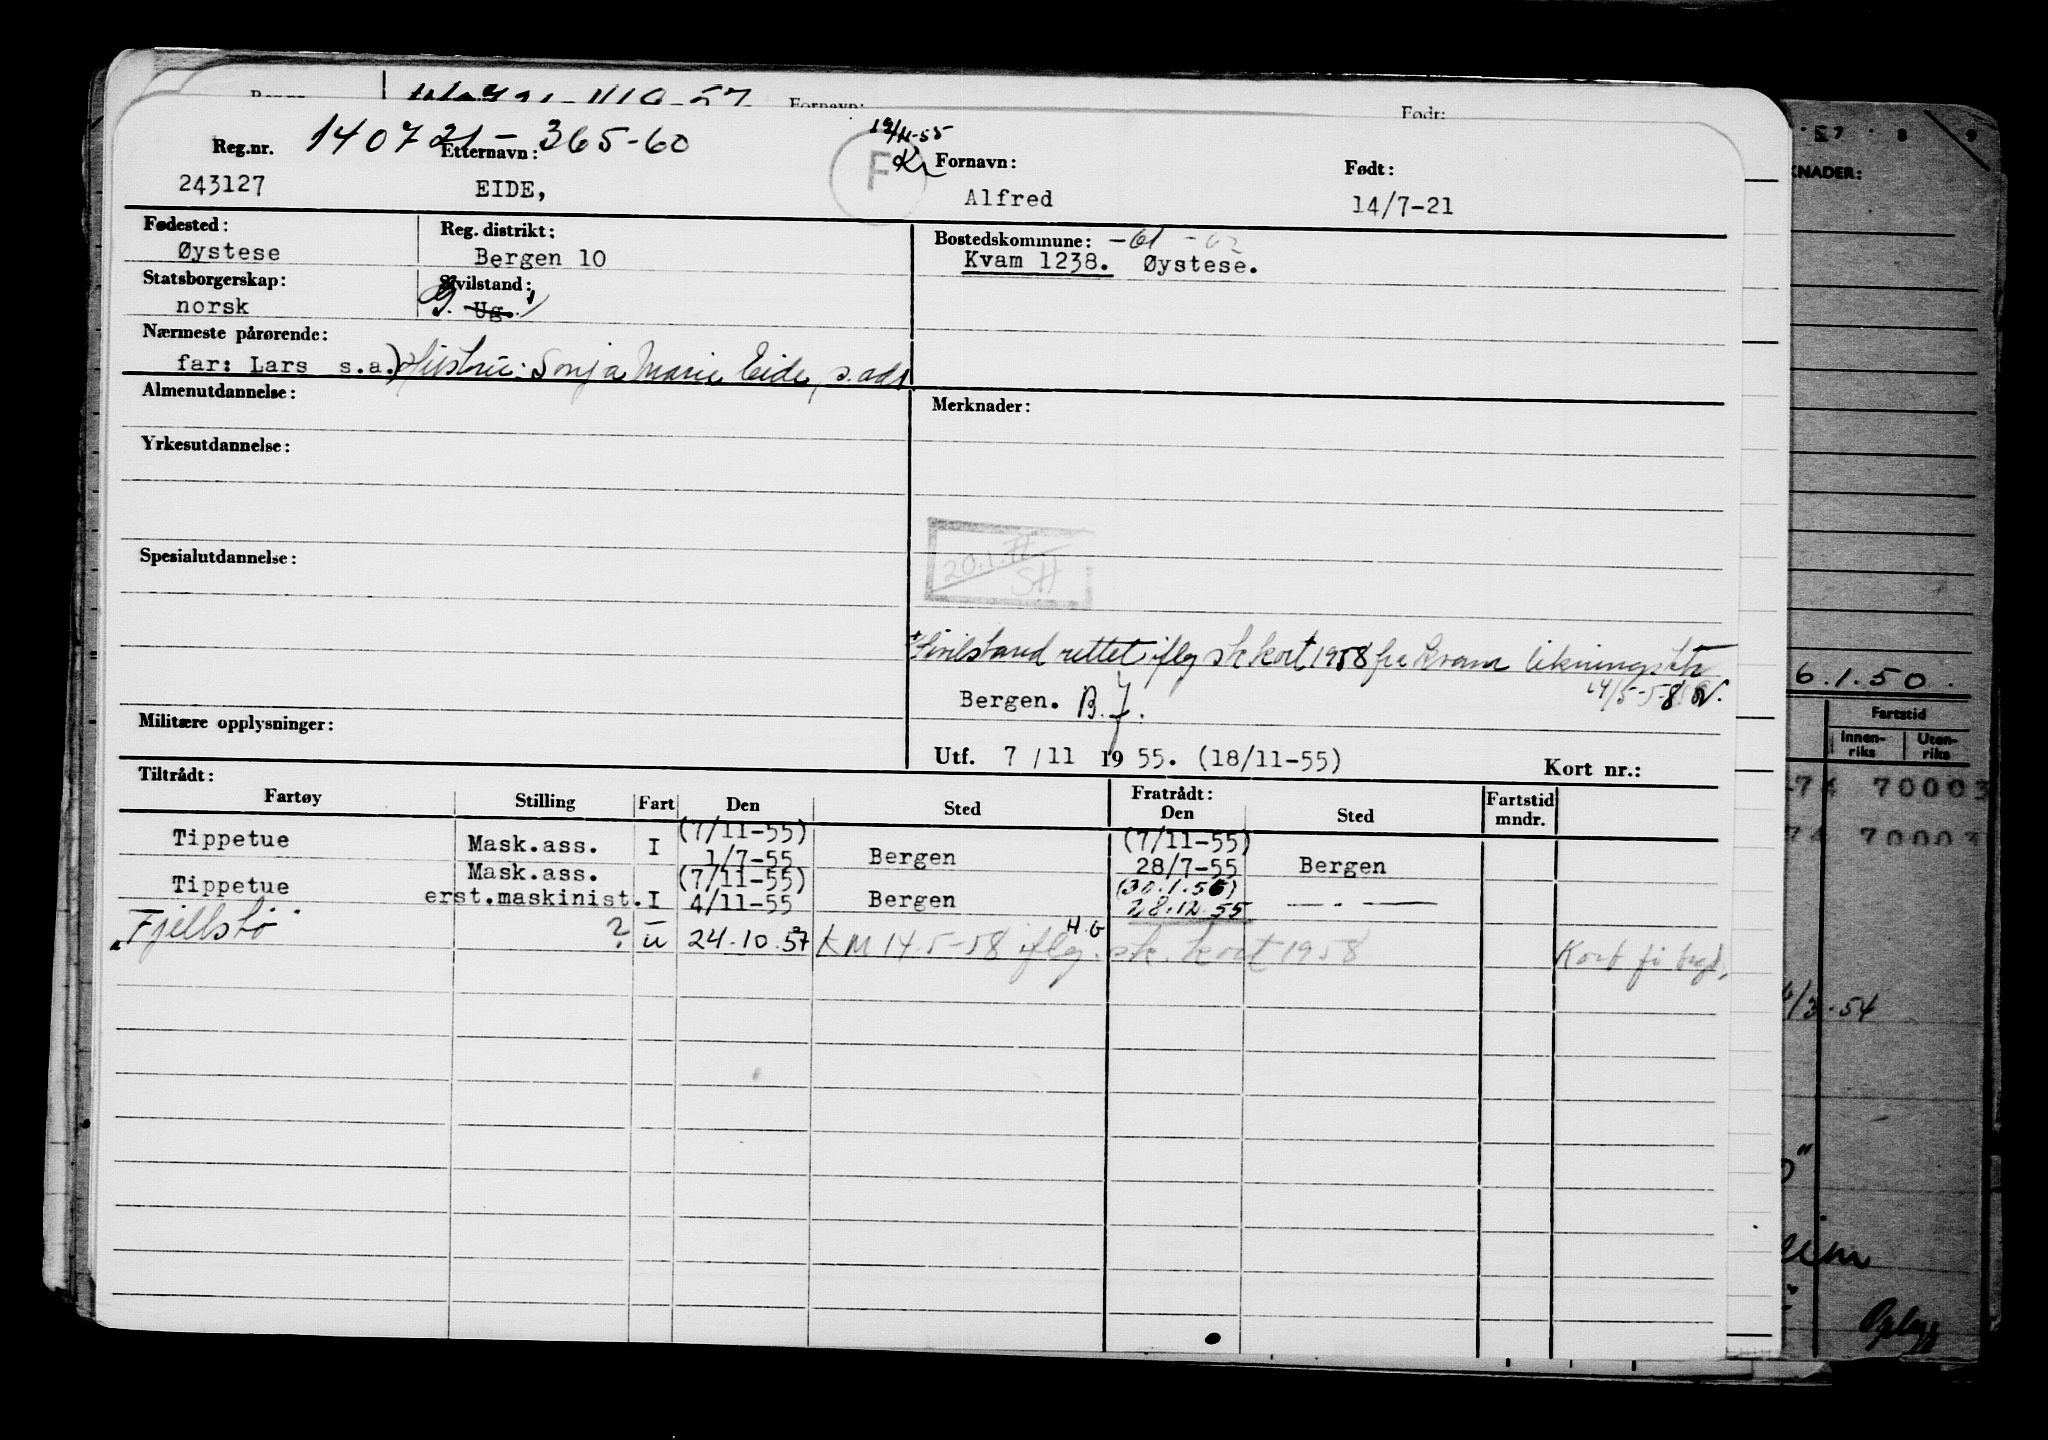 Fornavn: Født:
140721-365-60
19/11-55
Reg.nr. Etternavn: F Kr Fornavn: Født:
243127 EIDE, Alfred 14/7-21
Fødested: Reg. distrikt: Bostedskommune: -61 -62
Øystese Bergen 10 Kvam 1238. Øystese.
Statsborgerskap: Sivilstand:
norsk G. Ug. 1)
Nærmeste pårørende:
far: Lars s.a.) Hustru: Sonja Marie Eide, s.adr
Almenutdannelse: Merknader:
Yrkesutdannelse:
Spesialutdannelse:
20.1.
SH
1) Sivilstand rettet iflg sk kort 1958 fra Kvam likningsktr
14/5-58
Bergen. B.J.
Militære opplysninger:
Utf. 7/11 1955. (18/11-55) Kort nr.:
Tiltrådt: Fratrådt:
Fartøy Stilling Fart Den Sted Den Sted Fartstid mndr.
(7/11-55) (7/11-55)
Tippetue Mask.ass. I 1/7-55 Bergen 28/7-55 Bergen
Mask.ass. (7/11-55) (30.1.56)
Tippetue erst.maskinist. I 4/11-55 Bergen 28.12.55 — . —
H.G
"Fjellstø" ? u 24.10.57 KM 14.5-58 iflg. sk. kort 1958 Kort på
KNADER:
6.1.50.
Fartstid
Innenriks Utenriks
74 70003
74 70003
/3-54